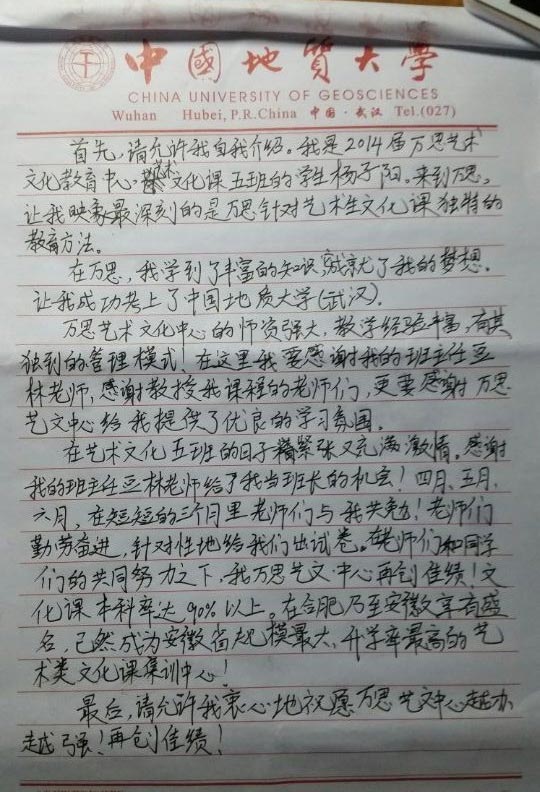 中國地質大學
CHINA UNIVERSITY OF GEOSCIENCES
Wuhan Hubei, P.R.China 中国·武汉 Tel.(027)
首先,请允许我自我介绍。我是2014届万思艺术
文化教育中心,艺术文化课五班的学生杨子阳。来到万思,
让我映象最深刻的是万思针对艺术生文化课独特的
教育方法。
在万思,我学到了丰富的知识,成就了我的梦想。
让我成功考上了中国地质大学(武汉)。
万思艺术文化中心的师资强大,教学经验丰富,有其
独到的管理模式。在这里我要感谢我的班主任豆
林老师,感谢教授我课程的老师们,更要感谢万思
艺文中心给我提供了优良的学习氛围。
在艺术文化五班的日子精紧张又充满激情。感谢
我的班主任豆林老师给了我当班长的机会!四月、五月、
六月,在短短的三个月里老师们与我共勉!老师们
勤劳奋进,针对性地给我们出试卷。在老师们和同学
们的共同努力之下,我万思艺文中心再创佳绩!文
化课本科率达90%以上。在合肥乃至安徽享有盛
名,已然成为安徽省规模最大,升学率最高的艺
术类文化课集训中心!
最后,请允许我衷心地祝愿万思艺文中心越办
越强!再创佳绩!